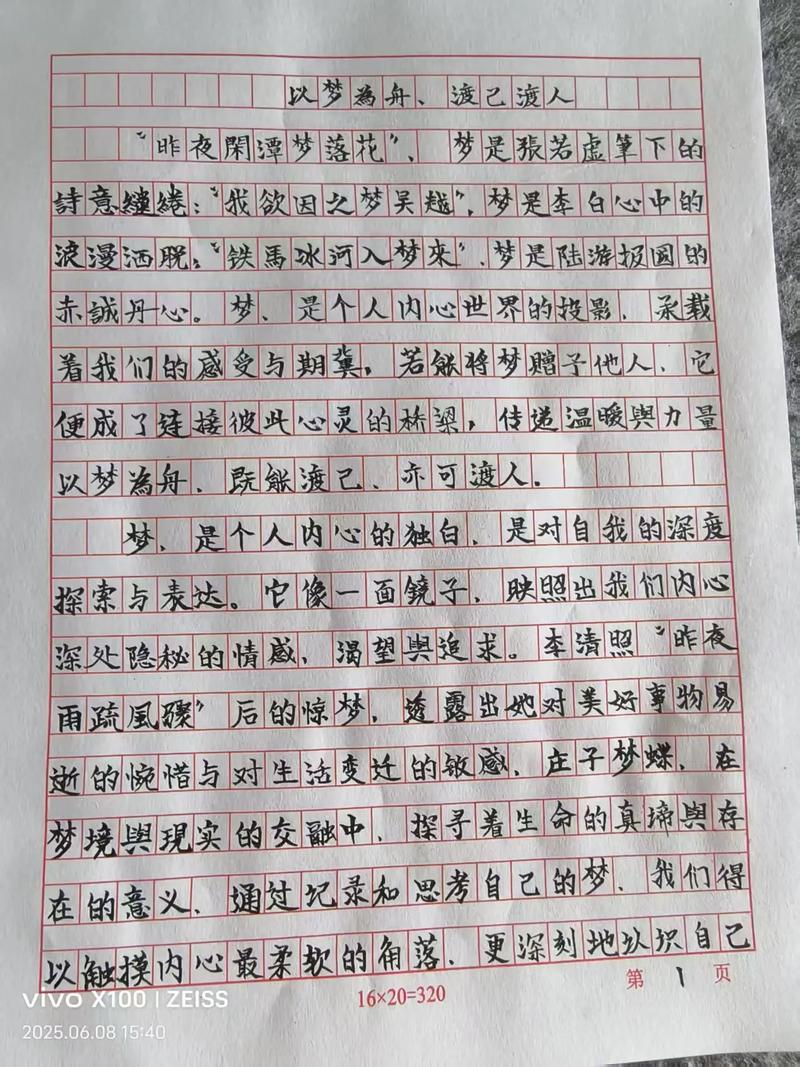 以梦為舟、渡己渡人
“昨夜閑潭梦落花”、梦是張若虚筆下的
詩意繾綣；“我欲因之梦吴越”，梦是李白心中的
浪漫洒脱；“铁馬冰河入梦來”、梦是陆游报國的
赤誠丹心。梦、是个人内心世界的投影、承载
着我们的感受与期冀，若能将梦赠予他人、它
便成了连接彼此心灵的桥梁，传递温暖與力量
以梦為舟、既能渡己、亦可渡人.
梦、是个人内心的独白、是对自我的深度
探索与表达。它像一面鏡子、映照出我们内心
深处隐秘的情感、渴望與追求。李清照“昨夜
雨疏風骤”后的惊梦，透露出她对美好事物易
逝的惋惜与对生活变迁的敏感、庄子梦蝶、在
梦境與現实的交融中、探寻着生命的真谛與存
在的意义、通过记录和思考自己的梦、我们得
以触摸内心最柔软的角落、更深刻地认识自己
第 1 页
16×20=320
vivo X100 | ZEISS
2025.06.08 15:40